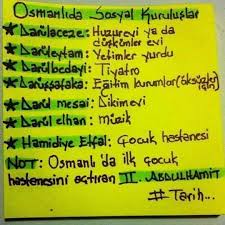 Osmanlıda Sosyal Kuruluşlar
★Darülaceze: Huzurevi ya da
düşkünler evi
★Darüleytam: Yetimler yurdu
★Darülbedayi: Tiyatro
★Darüşşafaka: Eğitim kurumları (öksüzler için)
★Darül mesai: Dikimevi
★Darül elhan: müzik
★Hamidiye Etfal: Çocuk hastanesi
NOT: Osmanlı'da ilk çocuk
hastanesini açtıran II. ABDULHAMİT
# Tarih...